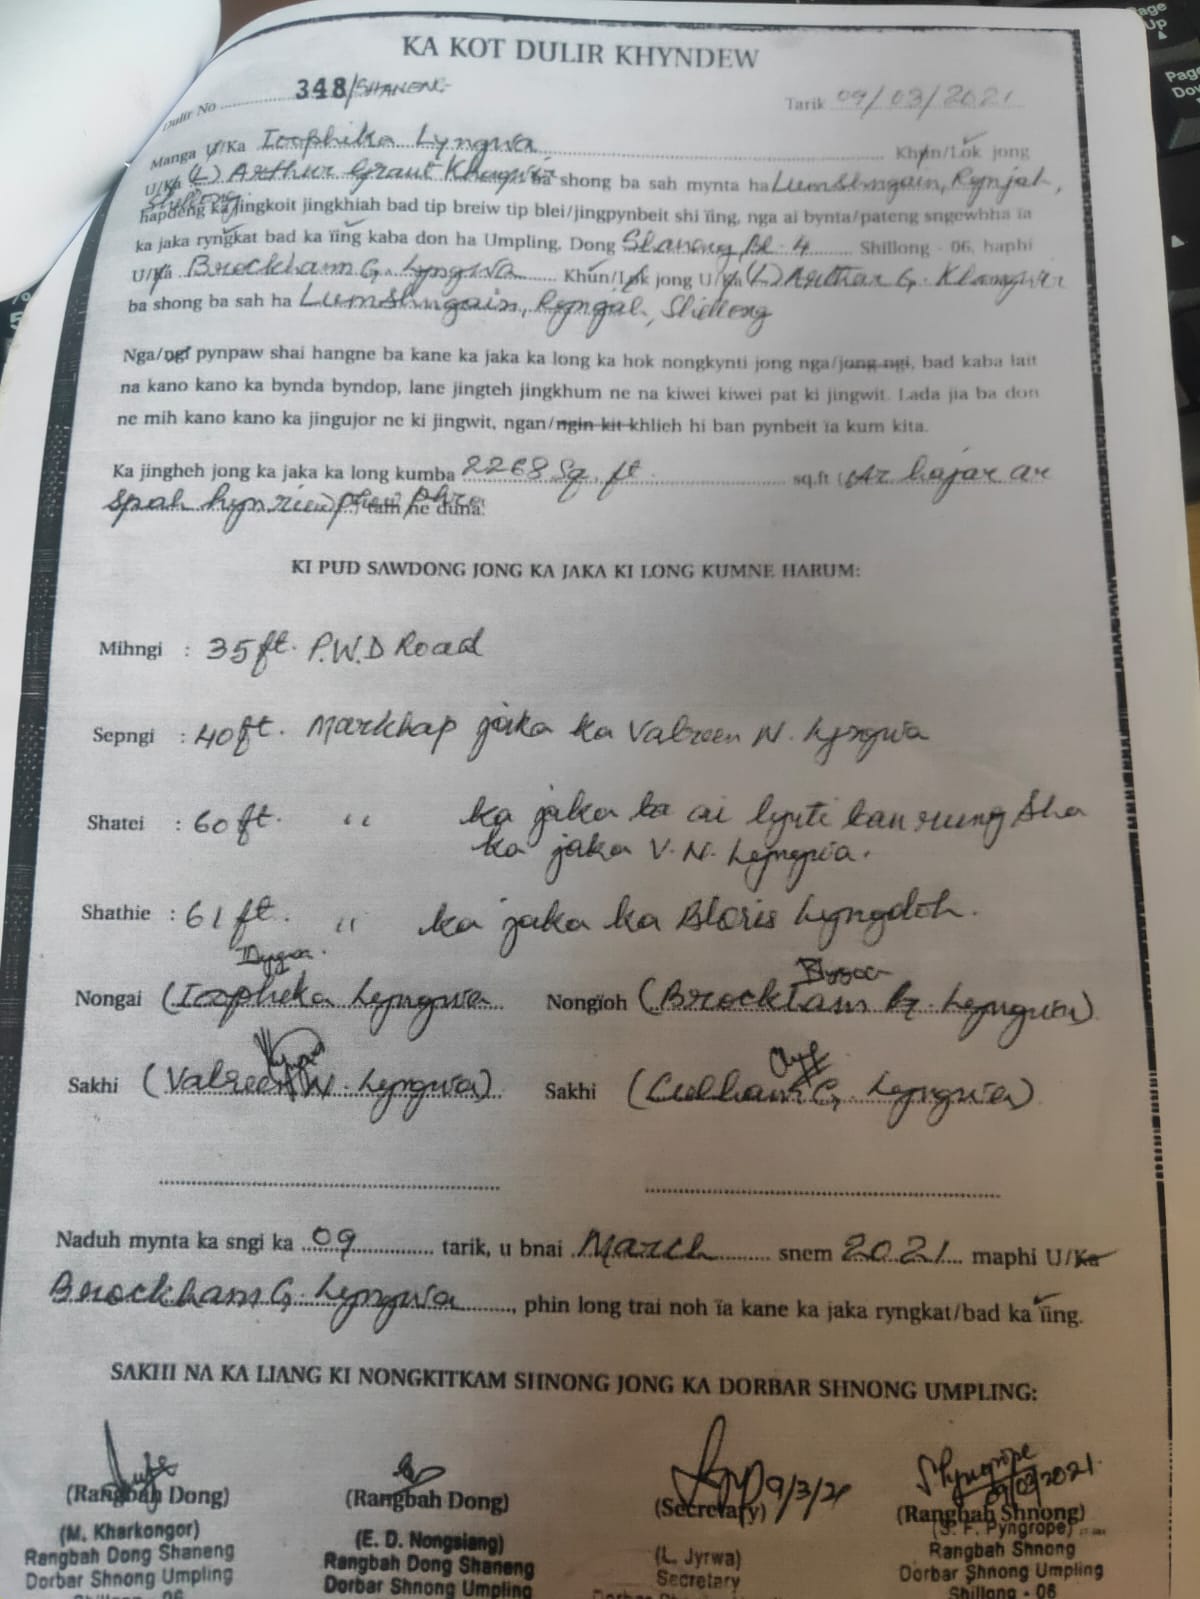 KA KOT DULIR KHYNDEW
Dulir No 348/SHANENG
Tarik 09/03/2021
Manga U/Ka Ioophika Lyngwa Khun/Lok jong
U/Ka (L) Arthur Graut ba shong ba sah mynta ha Lumshngain, Rynjah,
Shillong
hapdeng ka jingkoit jingkhiah bad tip breiw tip blei/jingpynbeit shi ïing, nga ai bynta/pateng sngewbha ïa
ka jaka ryngkat bad ka ïing kaba don ha Umpling, Dong Shaneng Bl- 4 Shillong - 06, haphi
U/Ka Brockham G. Lyngwa Khun/Lok jong U/Ka (L) Arthur G.
ba shong ba sah ha Lumshngain, Rynjah, Shillong
Nga/ngi pynpaw shai hangne ba kane ka jaka ka long ka hok nongkynti jong nga/jong ngi, bad kaba lait
na kano kano ka bynda byndop, lane jingteh jingkhum ne na kiwei kiwei pat ki jingwit. Lada jia ba don
ne mih kano kano ka jingujor ne ki jingwit, ngan/ngin kit khlieh hi ban pynbeit ïa kum kita.
Ka jingheh jong ka jaka ka long kumba 2268 Sq. ft sq.ft (Ar hajar ar
Spah hynriew phew phra) tam ne duna.
KI PUD SAWDONG JONG KA JAKA KI LONG KUMNE HARUM:
Mihngi : 35 ft. P.W.D Road
Sepngi : 40 ft. Markhap jaka ka Valreen N. Lyngwa
Shatei : 60 ft. " ka jaka ba ai lynti ban rung sha
ka jaka V. N. Lyngwa.
Shathie : 61 ft. " ka jaka ka Bloris Lyngdoh.
Nongai (Ioophika Lyngwa Nongïoh (Brockham G. Lyngwa)
Sakhi (Valreen N. Lyngwa) Sakhi (Culham G. Lyngwa)
Naduh mynta ka sngi ka 09 tarik, u bnai March snem 2021 maphi U/Ka
Brockham G. Lyngwa, phin long trai noh ïa kane ka jaka ryngkat/bad ka ïing.
SAKHI NA KA LIANG KI NONGKITKAM SHNONG JONG KA DORBAR SHNONG UMPLING:
9/3/21
Pyngrope
09/03/2021
(Rangbah Dong) (Rangbah Dong) (Secretary) (Rangbah Shnong)
(M. Kharkongor)
Rangbah Dong Shaneng
Dorbar Shnong Umpling
Shillong - 06
(E. D. Nongsiang)
Rangbah Dong Shaneng
Dorbar Shnong Umpling
(L. Jyrwa)
Secretary
(S. F. Pyngrope)
Rangbah Shnong
Dorbar Shnong Umpling
Shillong - 06
Page Up
Page Down